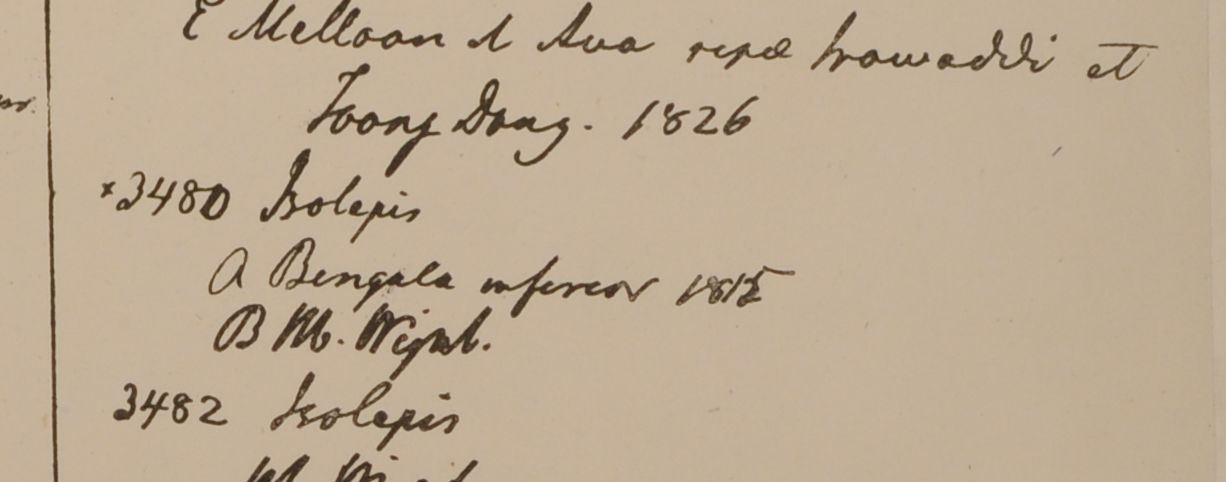 E Melloon & Ava ripæ Irawaddi et
Toong Dong. 1826
×3480 Isolepis
A Bengala inferior 1815
B Hb. Wight.
3482 Isolepis